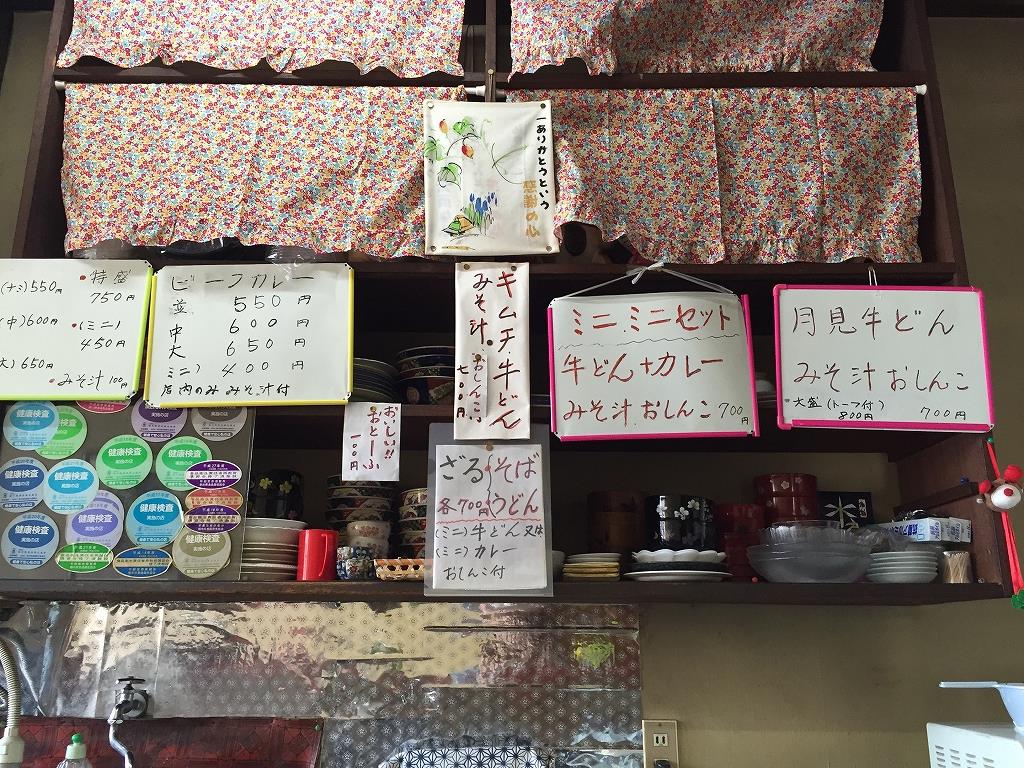 一ありがとうという
感謝の心
(ナミ) 550円
(中) 600円
大) 650円
・特盛
750円
・(ミニ)
450円
・みそ汁 100円
ビーフカレー
並 550円
中 600円
大 650円
ミニ) 400円
店内のみ みそ汁付
キムチ牛どん
みそ汁 おしんこ
七〇〇円
ミニ、ミニセット
牛どん+カレー
みそ汁 おしんこ 700円
月見牛どん
みそ汁 おしんこ
大盛 (トーフ付)
800円
700円
おいしい!!
おとーふ
一〇〇円
ざる そば うどん
各700円
(ミニ) 牛どん 又は
(ミニ) カレー
おしんこ付
健康検査
実施の店
健康検査
健康検査
実施の店
健康検査
健康検査
実施の店
健康検査
健康検査
実施の店
健康検査
実施の店
健康検査
実施の店